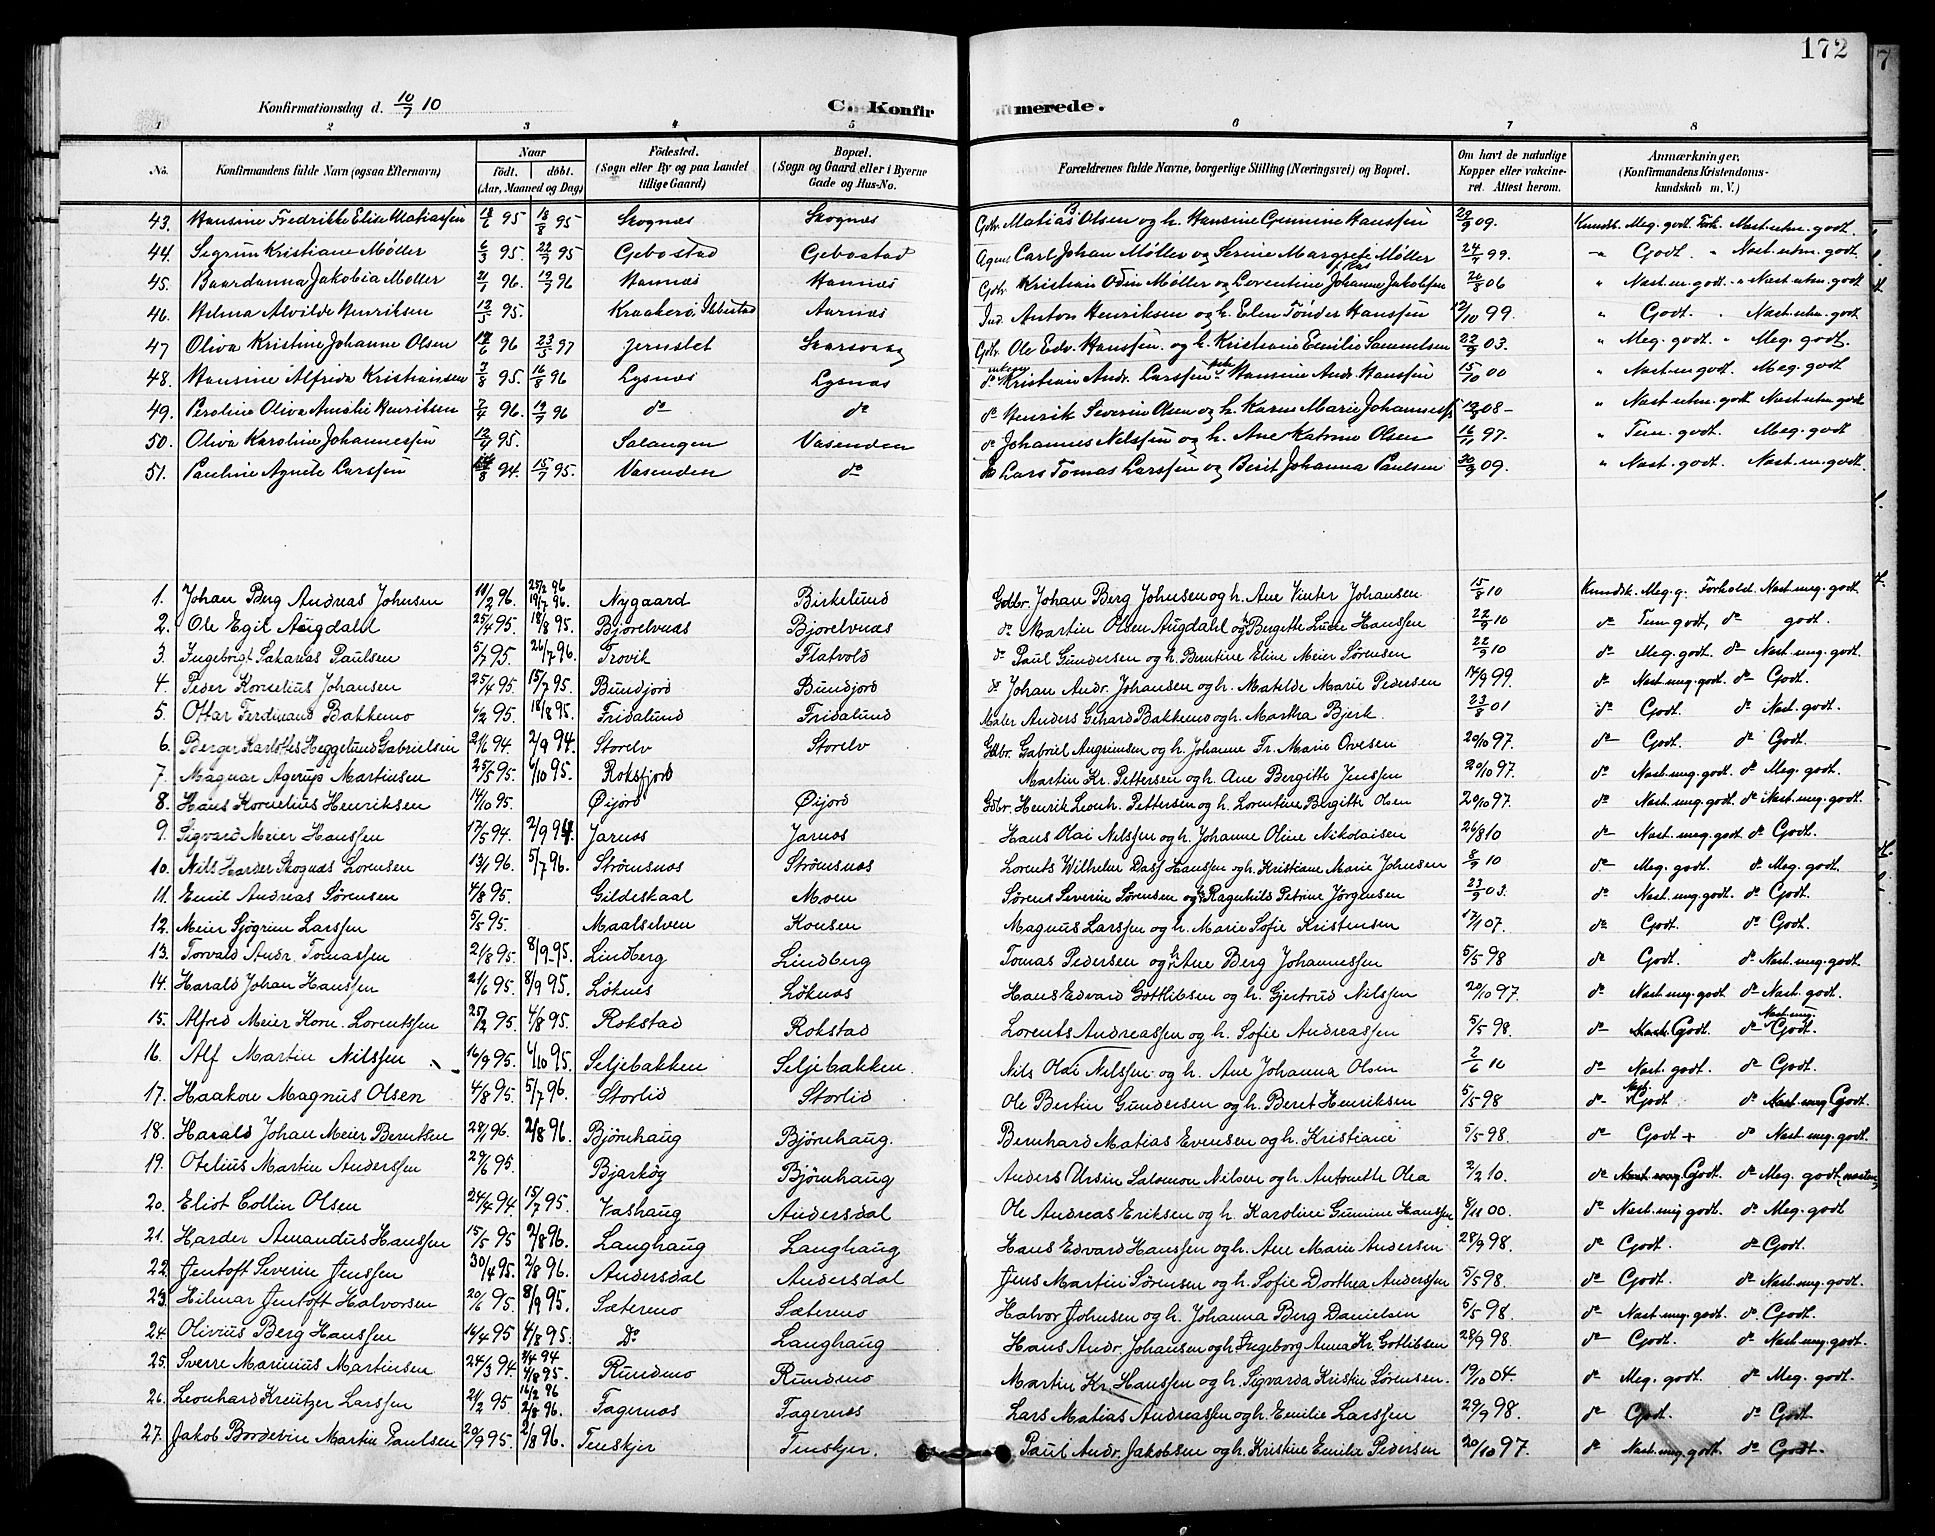 172
7
Konfirmationsdag d. 10/7 10 C. Konfirmerede.
1 2 3 4 5 6 7 8
No. Konfirmandens fulde Navn (ogsaa Efternavn) Naar Födt. döbt. (Aar, Maaned og Dag) Födested. (Sogn eller By og paa Landet tillige Gaard) Bopæl. (Sogn og Gaard eller i Byerne Gade og Hus-No. Forældrenes fulde Navne, borgerlige Stilling (Næringsvei) og Bopæl. Om havt de naturlige Kopper eller vakcineret. Attest herom. Anmærkninger. (Konfirmandens Kristendomskundskab m. V.)
43. Hansine Fredrikke Elise Matiassen 18/6 95 18/8 95 Skognæs Skognæs Gdbr. Matias B. Olsen og h. Hansine Hanssen 23/9 09. Kundsk. Meg. godt. Forh. Nast. utm. godt.
44. Sigrun Kristiane Møller 6/3 95. 22/7 95 Gebostad Gebostad Carl Johan Møller og Serine Margrete Møller 24/7 99. " Godt. " Nast. utm. godt.
45. Baardanna Jakobia Møller 21/1 96. 19/7 96 Hannæs Hannæs Gdbr. Kristian Odin Møller og Lorentine Johanne Jakobsen 26/8 06 " Nast. m. godt. " Nast. utm. godt
46. Helma Alvilde Henriksen 12/5 95. Kraakerø, Ibbestad Aarnæs Ind. Anton Henriksen og h. Elen Tønder Hanssen 12/10 99. " Godt. " Nast. utm. godt
47 Oliva Kristine Johanne Olsen 18/6 96 23/5 97 Jernslet Skarsvaag Gdbr. Ole Edv. Hanssen. og h. Kristiane Emilie Samuelsen 22/9 03. " Meg. godt. " Meg. godt.
48. Hansine Alfrida Kristiansen 3/8 95. 16/8 96 Lysnæs Lysnæs do Kristian Andr. Larssen Hansine Andr. Hanssen 15/10 00 " Nast. m godt. Meg. godt
49. Peroline Oliva Amalie Henriksen 7/4 96. 19/7 96 do do do Henrik Severin Olsen og h. Karen Marie Johannessen 08- " Nast. utm. godt Nast. utm. godt
50. Oliva Karoline Johannessen 12/4 95. Salangen Vasenden do Johannes Nelssen og h. Ane Katrine Olsen 16/7 97. " Tem. godt. Meg. godt
51. Pauline Agnete Larssen 14/8 94. 15/7 95. Vasenden do do Lars Tomas Larssen og Berit Johanna Paulsen 30/9 09. " Nast. godt. Nast. m. godt.
1. Johan Berg Andreas Johnsen 11/2 96. 25/2 96 19/7 96. Nygaard Birkelund Gdbr. Johan Berg Johnsen og h. Ane Vinter Johansen 15/8 10 Kundsk. Meg. g. Forhold Nast. meg. godt
2. Ole Egil Augdahl 25/4 95. 18/8 95. Bjorelvnæs Bjorelvnæs do Martin Olsen Augdahl og h. Bergitte Lucie Hanssen 22/9 10 do Tem godt, do godt.
3. Ingebrigt Sakarias Paulsen 5/7 95. 26/7 96. Trovik Flatvold do Paul Gundersen og h. Berntine Eline Meier Sørensen 22/9 10 do Meg. godt. do Nast. meg. godt.
4. Peder Kornelius Johansen 25/4 95. 15/7 95. Bundjord Bundjord do Johan Andr. Johansen og h. Matilde Marie Pedersen 14/9 99 do Nast. mg. godt do Godt.
5. Ottar Ferdinand Bakkemo 6/2 95. 18/8 95. Fridalund Fridalund Maler Anders Gerhard Bakkemo og h. Martha Bjerk. 23/8 01 do Godt. do Nast. godt.
6. Berger Karlottes Heggelund Gabrielsen 21/6 94. 2/9 94. Storelv Storelv Gdbr. Gabriel Angrimsen og h. Johanne Fr. Marie Ovesen 20/10 97. do Godt. do Godt.
7. Magnar Agerup Martinsen 25/5 95. 6/10 95. Roksfjord Martin Kr. Pettersen og h. Ane Bergitte Jenssen 20/10 97. do Nast. mg. godt. do Meg. godt.
8. Hans Kornelius Henriksen 14/10 95. Øijord Øijord Gdbr. Henrik Leonh. Pettersen og h. Lorentine Bergitte Olsen 20/10 97. do Nast. mg. godt do Nast. mg. godt.
9. Sigvard Meier Hanssen 17/5 94. 2/9 94. Jarnæs Jarnæs Hans Olai Nilssen og h. Johanne Oline Nikolaisen 26/8 10 do Nast. meg. godt do Godt.
10. Nils Harder Skognæs Lorensen 13/1 96. 5/7 96. Strømsnæs Strømsnæs Lorents Wilhelm Dass Hanssen og h. Kristiane Marie Johnsen 8/9 10 do Meg. godt. do Meg. godt.
11. Emil Andreas Sørensen 4/8 95. Gildeskaal Moen Sørens Severin Sørensen og h. Ragnhild Petrine Jörgensen 23/9 03. do Nast. mg. godt do Godt.
12. Meier Sjögrim Larssen 5/5 95. Maalselven Konsen Magnus Larssen og h. Marie Sofie Kristensen 17/1 07. do Godt. do Godt.
13. Torvald Andr. Tomassen 21/8 95. 8/9 95. Lindberg Lindberg Tomas Pedersen og h. Ane Berg Johannessen 5/5 98 do Godt. do Nast. mg. godt.
14. Harald Johan Hanssen 21/6 95. 8/9 95. Løknes Løknæs Hans Edvard Gottlibsen og h. Gjertrud Nilssen 20/10 97. do Nast. mg. godt do Nast. godt.
15. Alfred Meier Korn. Lorentssen 25/2 95. 4/8 95. Rokstad Rokstad Lorents Andreassen og h. Sofie Andreassen 5/5 98. do Nast. Godt. do Nast. mg. Godt.
16. Alf Martin Nilssen 16/9 95. 6/10 95. Seljebakken Seljebakken. Nils Olai Nilssen og h. Ane Johanna Olsen 2/6 10 do Nast. godt. do Godt.
17. Haakon Magnus Olsen 4/8 95. 5/7 96. Storlid Storlid Ole Bertin Gundersen og h. Beret Henriksen 5/5 98 do Nast. Godt do Nast. meg Godt.
18. Harald Johan Meier Berntsen 28/1 96. 2/8 96. Björnhaug Björnhaug. Bernhard Matias Evensen og h. Kristiane 5/5 98. do Godt + do Nast. meg. godt.
19. Otelius Martin Anderssen 29/6 95. Bjarköy Björnhaug Anders Ursin Salomon Nilsen og h. Antonette Olea 2/2 10. do Nast. meg Godt do Meg. godt (næsten)
20. Eliot Collin Olsen 24/4 94. 15/7 95. Vashaug Andersdal Ole Andreas Eriksen og h. Karoline Gunine Hanssen 8/11 00. do Nast. mg godt. do Meg. godt
21. Harder Amandus Hanssen 15/5 95 2/8 96. Langhaug Langhaug Hans Edvard Hanssen og h. Ane Marie Andersen 28/9 98. do Godt. do Godt.
22. Jentoft Severin Jenssen 30/4 95. 2/8 96. Andersdal Andersdal Jens Martin Sørensen og h. Sofie Dorthea Anderssen 5/5 98. do Godt. do Nast. mg. godt.
23. Hilmar Jentoft Halvorsen 20/6 95. 8/9 95. Sætermo Sætermo Halvor Johnsen og h. Johanna Berg Danielsen 5/5 98. do Nast. mg. godt. do Godt.
24. Olivius Berg Hanssen 16/4 95 4/8 95. Do Langhaug Hans Andr. Johansen og h. Ingeborg Anna Kr. Gotlibsen 28/9 98. do Godt. do Nast. meg. godt.
25. Sverre Marinius Martinsen 24/3 94. 2/4 94 4/8 95. Rundmo Rundmo Martin Kr. Hanssen og h. Sigvarda Kristin Sørensen. 19/10 04. do Meg. godt. do Meg. godt.
26. Leonhard Kreutzer Larssen 21/2 95 16/2 96 2/8 96. Fagernæs Fagernæs Lars Matias Andreassen og h. Emilie Larssen 29/9 98. do Godt. do Godt
27. Jakob Bordevin Martin Paulsen 20/9 95. 2/8 96. Tenskjer Tenskjer. Paul Andr. Jakobsen og h. Kristine Emilie Pedersen 20/10 97. do Nast. mg. godt. do Godt.